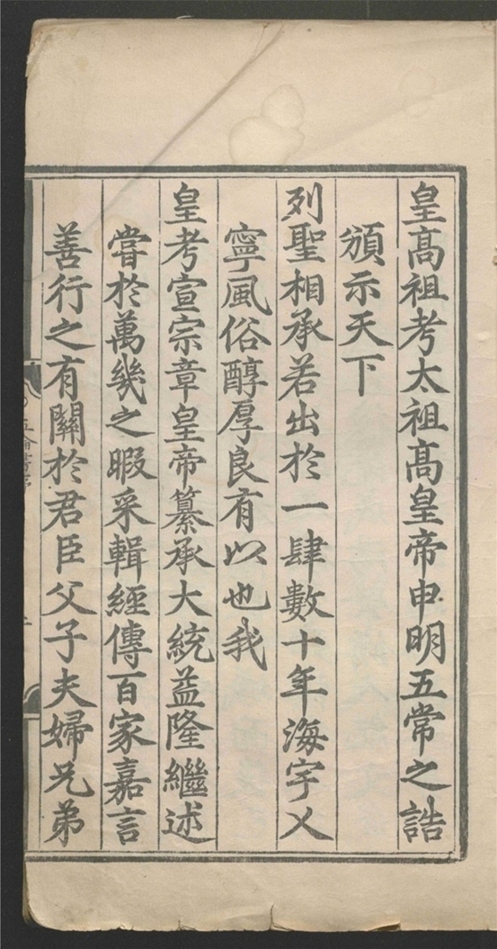 皇高祖考太祖高皇帝申明五常之誥
頒示天下
列聖相承若出於一肆數十年海宇乂
寧風俗醇厚良有以也我
皇考宣宗章皇帝纂承大統益隆繼述
嘗於萬幾之暇采輯經傳百家嘉言
善行之有關於君臣父子夫婦兄弟